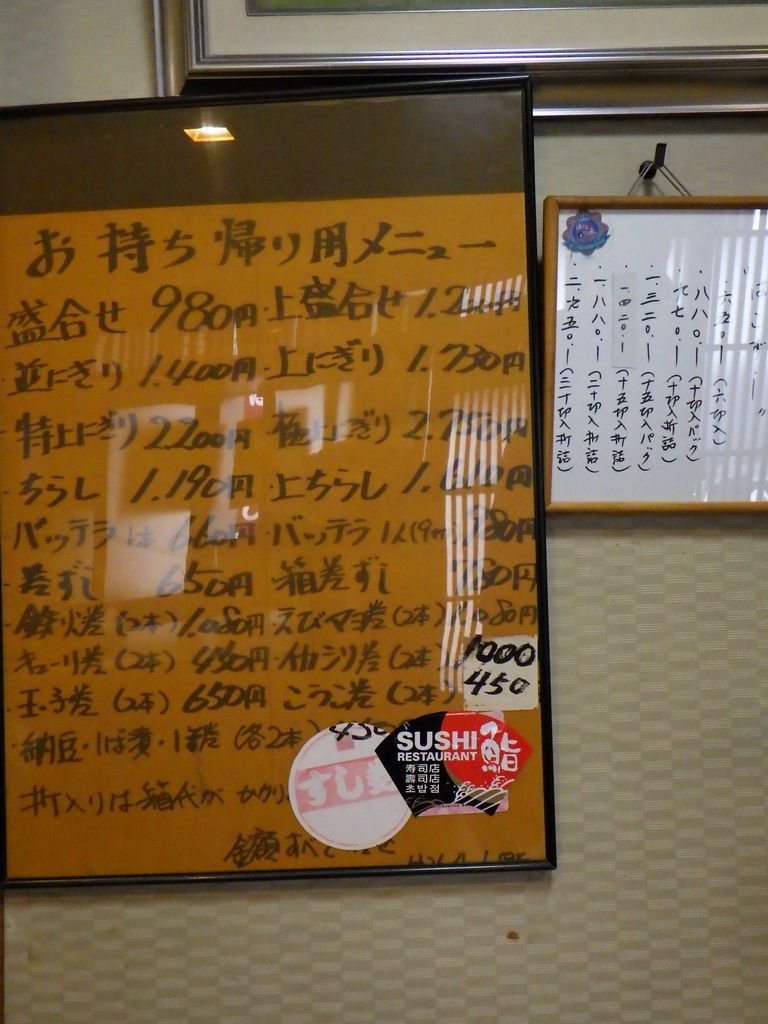 お持ち帰り用メニュー
盛合せ 980円・上盛合せ
・並にぎり 1.400円・上にぎり 1.730円
・特上にぎり 2.200円・極上にぎり 2.750円
・ちらし 1.190円・上ちらし 1.610円
・バッテラ 660円・バッテラ 1人
・巻ずし 650円・箱巻ずし 780円
・鉄火巻(2本)1.080円・えびマヨ巻(2本)1.080円
・キューリ巻(2本)450円・イカシソ巻(2本)1000
・玉子巻(2本)650円・こうこ巻(2本)450
・納豆・しば漬・(各2本)450
折入りは箱代がかかり
金額すべて
すし
SUSHI
RESTAURANT
鮨
寿司店
壽司店
초밥점
六五〇.ー(六切入)
・八八〇.ー(十切入パック)
・七七〇.ー(十切入折詰)
・一.三二〇.ー(十五切入パック)
・一四二〇.ー(十五切入折詰)
・一.八八〇.ー(二十切入折詰)
・二.九五〇.ー(三十切入折詰)